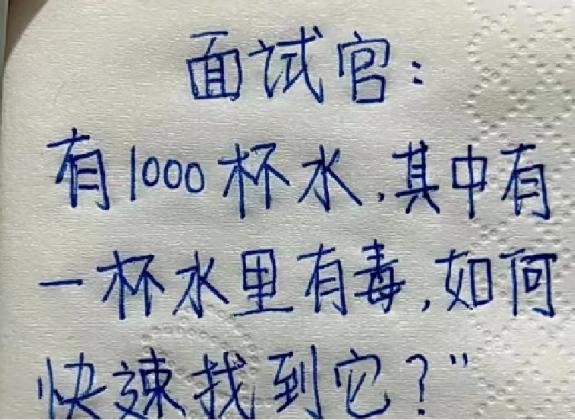 面试官:
有1000杯水,其中有
一杯水里有毒,如何
快速找到它?"